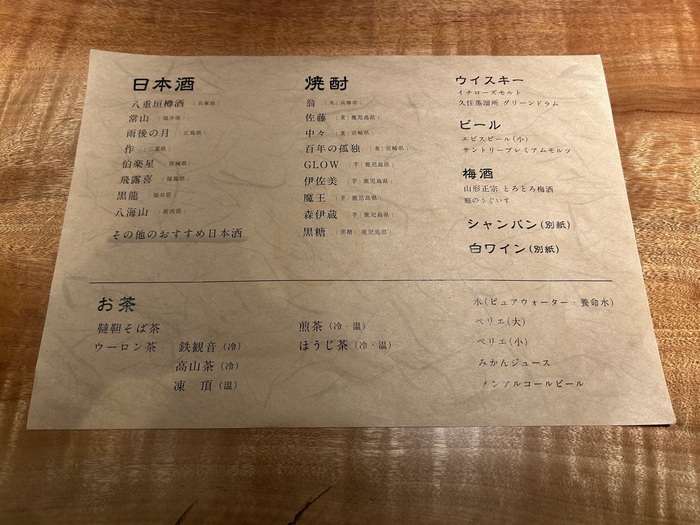 日本酒
八重垣樽酒（兵庫県）
常山（福井県）
雨後の月（広島県）
作（三重県）
伯楽星（宮城県）
飛露喜（福島県）
黒龍（福井県）
八海山（新潟県）
その他のおすすめ日本酒
焼酎
翁（米｜兵庫県）
佐藤（麦｜鹿児島県）
中々（麦｜宮崎県）
百年の孤独（麦｜宮崎県）
GLOW（芋｜鹿児島県）
伊佐美（芋｜鹿児島県）
魔王（芋｜鹿児島県）
森伊蔵（芋｜鹿児島県）
黒糖（黒糖｜鹿児島県）
ウイスキー
イチローズモルト
久住蒸溜所 グリーンドラム
ビール
エビスビール(小)
サントリープレミアムモルツ
梅酒
山形正宗 とろとろ梅酒
庭のうぐいす
シャンパン(別紙)
白ワイン(別紙)
お茶
韃靼そば茶
ウーロン茶 鉄観音（冷）
高山茶（冷）
凍 頂（温）
煎茶（冷・温）
ほうじ茶（冷・温）
水(ピュアウォーター・養命水)
ペリエ(大)
ペリエ(小)
みかんジュース
ノンアルコールビール